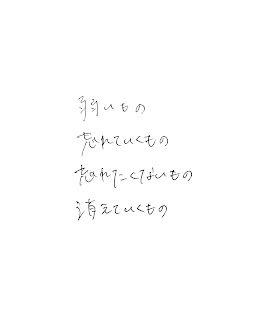 弱いもの
忘れていくもの
忘れたくないもの
消えていくもの